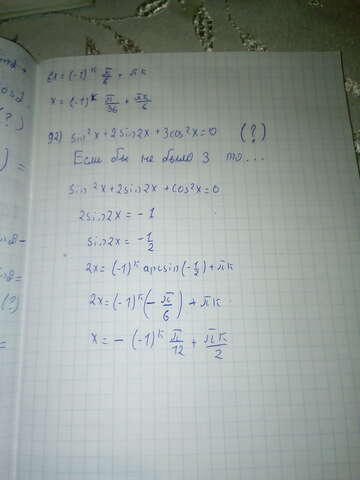 6x = (-1)^k π/6 + πk
x = (-1)^k π/36 + πk/6
92) sin²x + 2sin2x + 3cos²x = 0 (?)
Если бы не было 3 то...
sin²x + 2sin2x + cos²x = 0
2sin2x = -1
sin2x = -1/2
2x = (-1)^k arcsin(-1/2) + πk
2x = (-1)^k (-π/6) + πk
x = -(-1)^k π/12 + πk/2